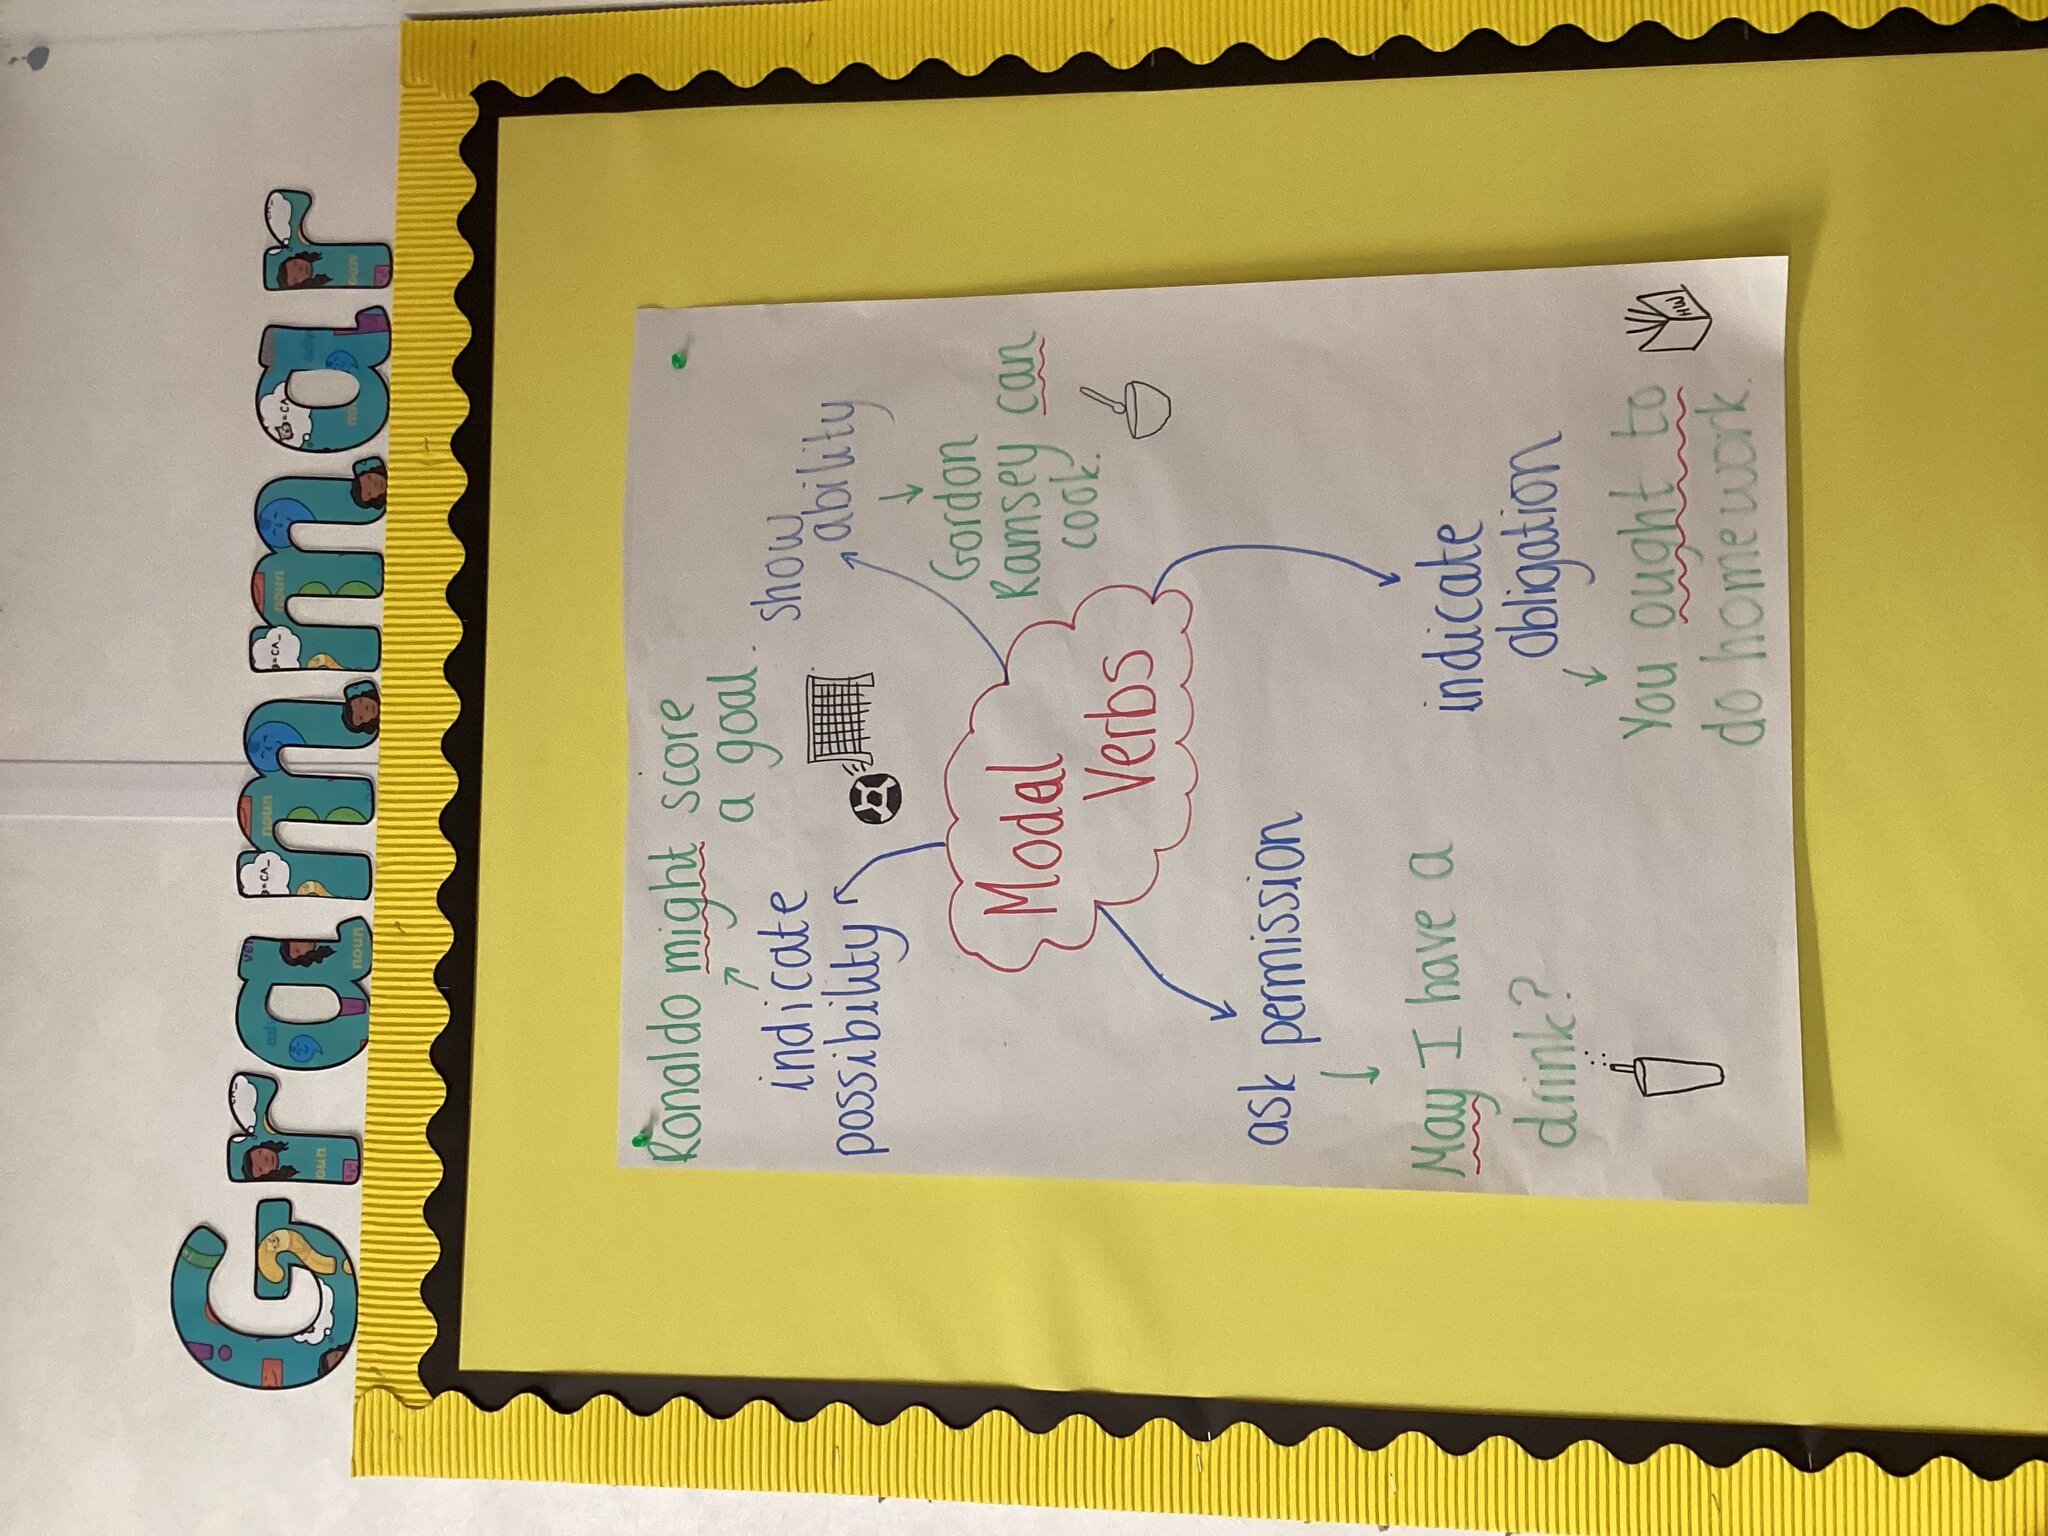 Grammar
Ronaldo might score
a goal.
indicate
possibility
show
ability
Gordon
Ramsey can
cook.
Modal
Verbs
ask permission
May I have a
drink?
indicate
obligation
You ought to
do homework.
HW